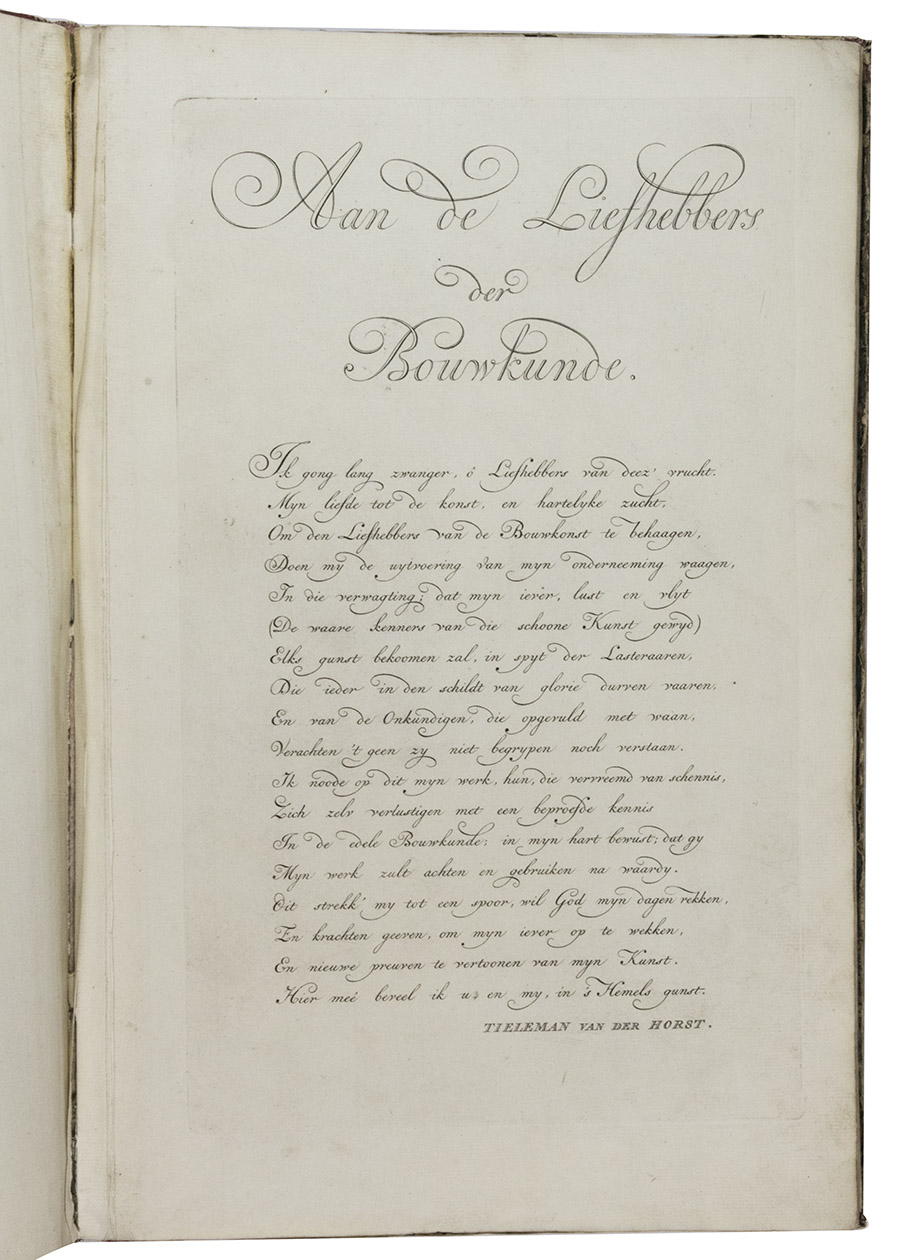 Aan de Liefhebbers
der
Bouwkunde.
Ik gong lang zwanger, ô Liefhebbers van deez' vrucht.
Myn liefde tot de konst, en hartelyke zucht,
Om den Liefhebbers van de Bouwkonst te behaagen,
Doen my de uytvoering van myn onderneeming waagen,
In die verwagting; dat myn iever, lust en vlyt
(De waare kenners van die schoone Kunst gewyd)
Elks gunst bekoomen zal, in spyt der Lasteraaren,
Die ieder in den schildt van glorie durven vaaren,
En van de Onkundigen, die opgevuld met waan,
Verachten 't geen zy niet begrypen noch verstaan.
Ik noode op dit myn werk, hun, die vervreemd van schennis,
Zich zelv verlustigen met een beproefde kennis
In de edele Bouwkunde; in myn hart bewust; dat gy
Myn werk zult achten en gebruiken na waardy.
Dit strekk' my tot een spoor, wil God myn dagen rekken,
En krachten geeven, om myn iever op te wekken,
En nieuwe preuven te vertoonen van myn Kunst.
Hier meê beveel ik u en my, in 's Hemels gunst.
TIELEMAN VAN DER HORST.